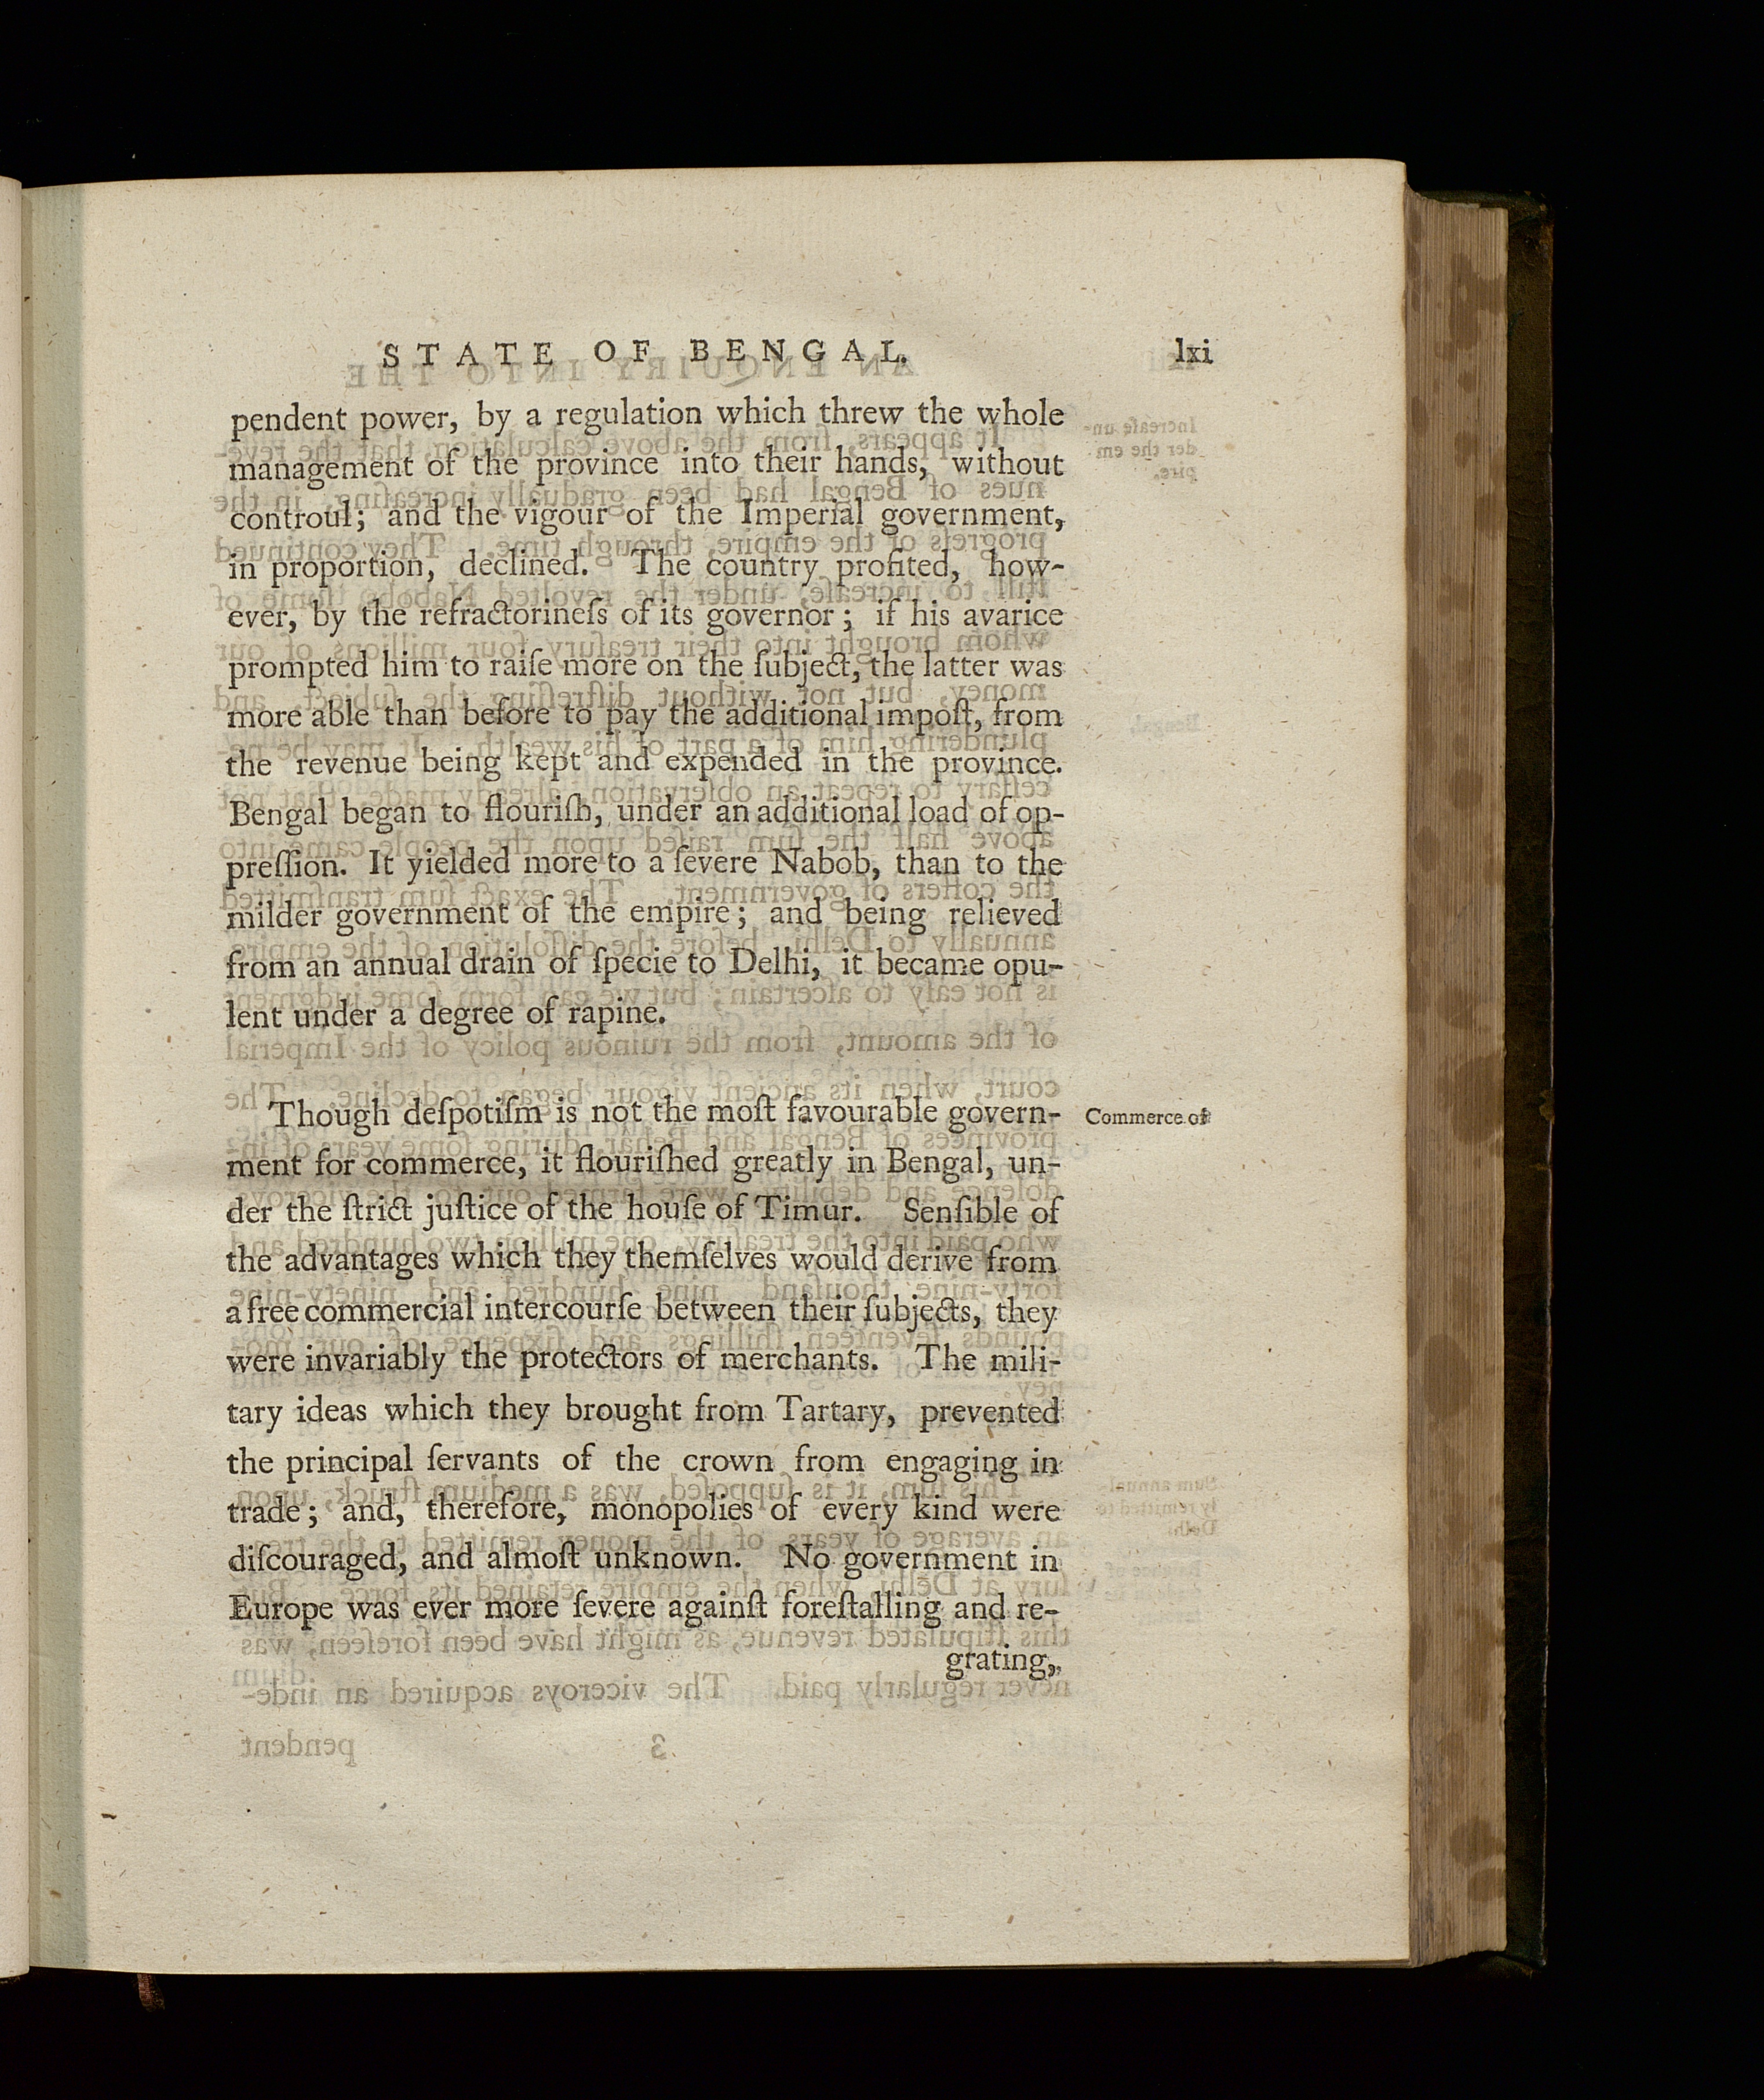 STATE OF BENGAL. lxi
pendent power, by a regulation which threw the whole
management of the province into their hands, without
controul; and the vigour of the Imperial government,
in proportion, declined. The country profited, how-
ever, by the refractorineſs of its governor; if his avarice
prompted him to raiſe more on the ſubject, the latter was
more able than before to pay the additional impoſt, from
the revenue being kept and expended in the province.
Bengal began to flouriſh, under an additional load of op-
preſſion. It yielded more to a ſevere Nabob, than to the
milder government of the empire; and being relieved
from an annual drain of ſpecie to Delhi, it became opu-
lent under a degree of rapine.
Though deſpotiſm is not the moſt favourable govern-
Commerce of
ment for commerce, it flouriſhed greatly in Bengal, un-
der the ſtrict juſtice of the houſe of Timur. Senſible of
the advantages which they themſelves would derive from
a free commercial intercourſe between their ſubjects, they
were invariably the protectors of merchants. The mili-
tary ideas which they brought from Tartary, prevented
the principal ſervants of the crown from engaging in
trade; and, therefore, monopolies of every kind were
diſcouraged, and almoſt unknown. No government in
Europe was ever more ſevere againſt foreſtalling and re-
grating,